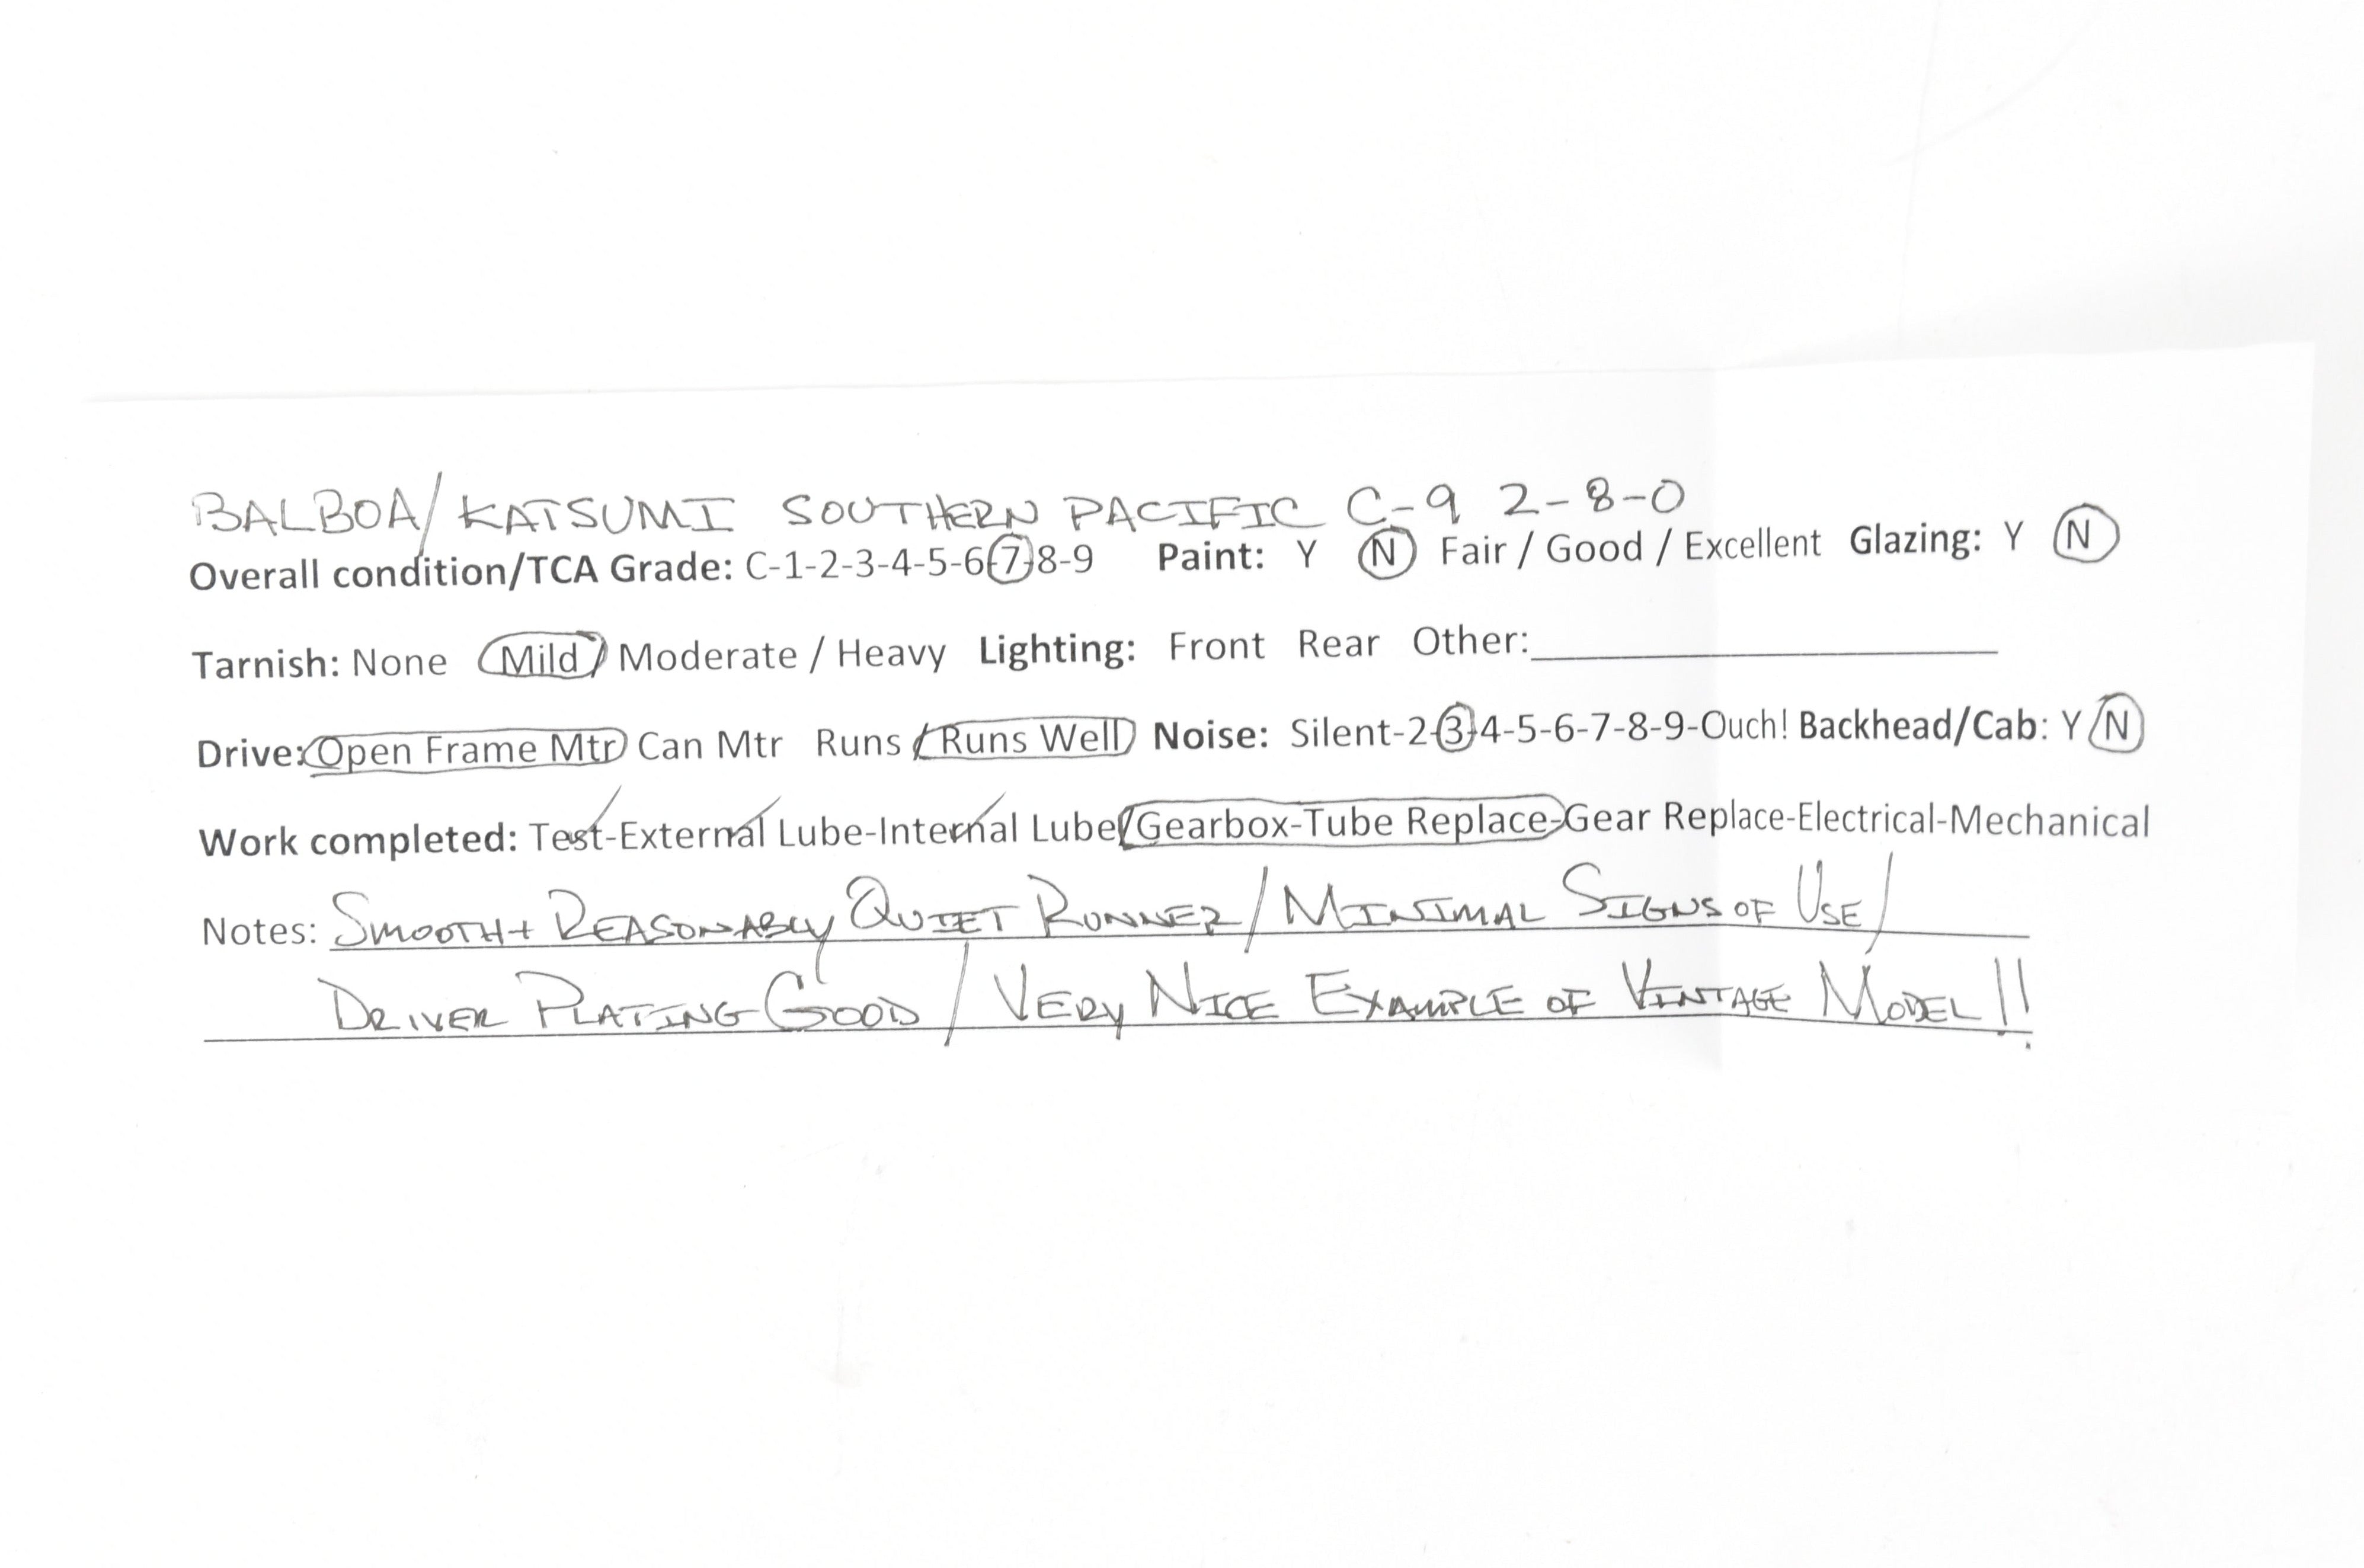 BALBOA/KATSUMI SOUTHERN PACIFIC C-9 2-8-0
Overall condition/TCA Grade: C-1-2-3-4-5-6-7-8-9 Paint: Y N Fair / Good / Excellent Glazing: Y N
Tarnish: None Mild / Moderate / Heavy Lighting: Front Rear Other:
Drive: Open Frame Mtr Can Mtr Runs / Runs Well Noise: Silent-2-3-4-5-6-7-8-9-Ouch! Backhead/Cab: Y N
Work completed: Test-External Lube-Internal Lube/Gearbox-Tube Replace-Gear Replace-Electrical-Mechanical
Notes: SMOOTH + REASONABLY QUIET RUNNER/MINIMAL SIGNS OF USE/
DRIVER PLATING GOOD/VERY NICE EXAMPLE OF VINTAGE MODEL!!